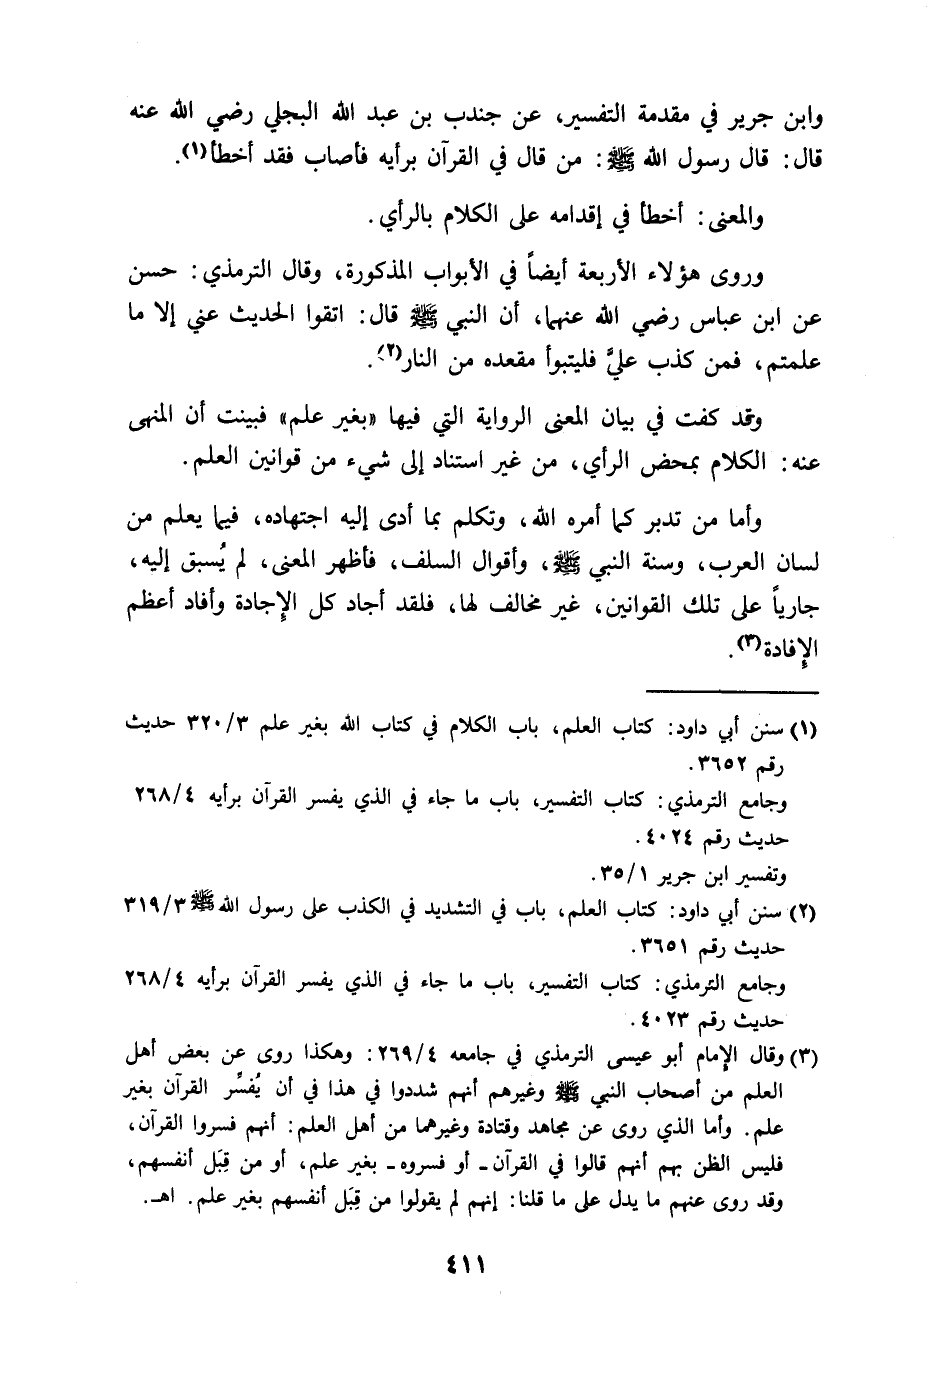 وابن جرير في مقدمة التفسير، عن جندب بن عبد الله البجلي رضي الله عنه
قال: قال رسول الله ﷺ: من قال في القرآن برأيه فأصاب فقد أخطأ(١).
والمعنى: أخطأ في إقدامه على الكلام بالرأي.
وروى هؤلاء الأربعة أيضاً في الأبواب المذكورة، وقال الترمذي: حسن
عن ابن عباس رضي الله عنهما، أن النبي ﷺ قال: اتقوا الحديث عني إلا ما
علمتم، فمن كذب عليَّ فليتبوأ مقعده من النار(٢).
وقد كفت في بيان المعنى الرواية التي فيها «بغير علم» فبينت أن المنهى
عنه: الكلام بمحض الرأي، من غير استناد إلى شيء من قوانين العلم.
وأما من تدبر كما أمره الله، وتكلم بما أدى إليه اجتهاده، فيما يعلم من
لسان العرب، وسنة النبي ﷺ، وأقوال السلف، فأظهر المعنى، لم يُسبق إليه،
جارياً على تلك القوانين، غير مخالف لها، فلقد أجاد كل الإجادة وأفاد أعظم
الإفادة(٣).
(١) سنن أبي داود: كتاب العلم، باب الكلام في كتاب الله بغير علم ٣/‏٣٢٠ حديث
رقم ٣٦٥٢.
وجامع الترمذي: كتاب التفسير، باب ما جاء في الذي يفسر القرآن برأيه ٤/‏٢٦٨
حديث رقم ٤٠٢٤.
وتفسير ابن جرير ١/‏٣٥.
(٢) سنن أبي داود: كتاب العلم، باب في التشديد في الكذب على رسول الله ﷺ ٣/‏٣١٩
حديث رقم ٣٦٥١.
وجامع الترمذي: كتاب التفسير، باب ما جاء في الذي يفسر القرآن برأيه ٤/‏٢٦٨
حديث رقم ٤٠٢٣.
(٣) وقال الإمام أبو عيسى الترمذي في جامعه ٤/‏٢٦٩: وهكذا روى عن بعض أهل
العلم من أصحاب النبي ﷺ وغيرهم أنهم شددوا في هذا في أن يُفسَّر القرآن بغير
علم. وأما الذي روى عن مجاهد وقتادة وغيرهما من أهل العلم: أنهم فسروا القرآن،
فليس الظن بهم أنهم قالوا في القرآن - أو فسروه - بغير علم، أو من قِبَل أنفسهم،
وقد روى عنهم ما يدل على ما قلنا: إنهم لم يقولوا من قِبَل أنفسهم بغير علم. اهـ.
٤١١